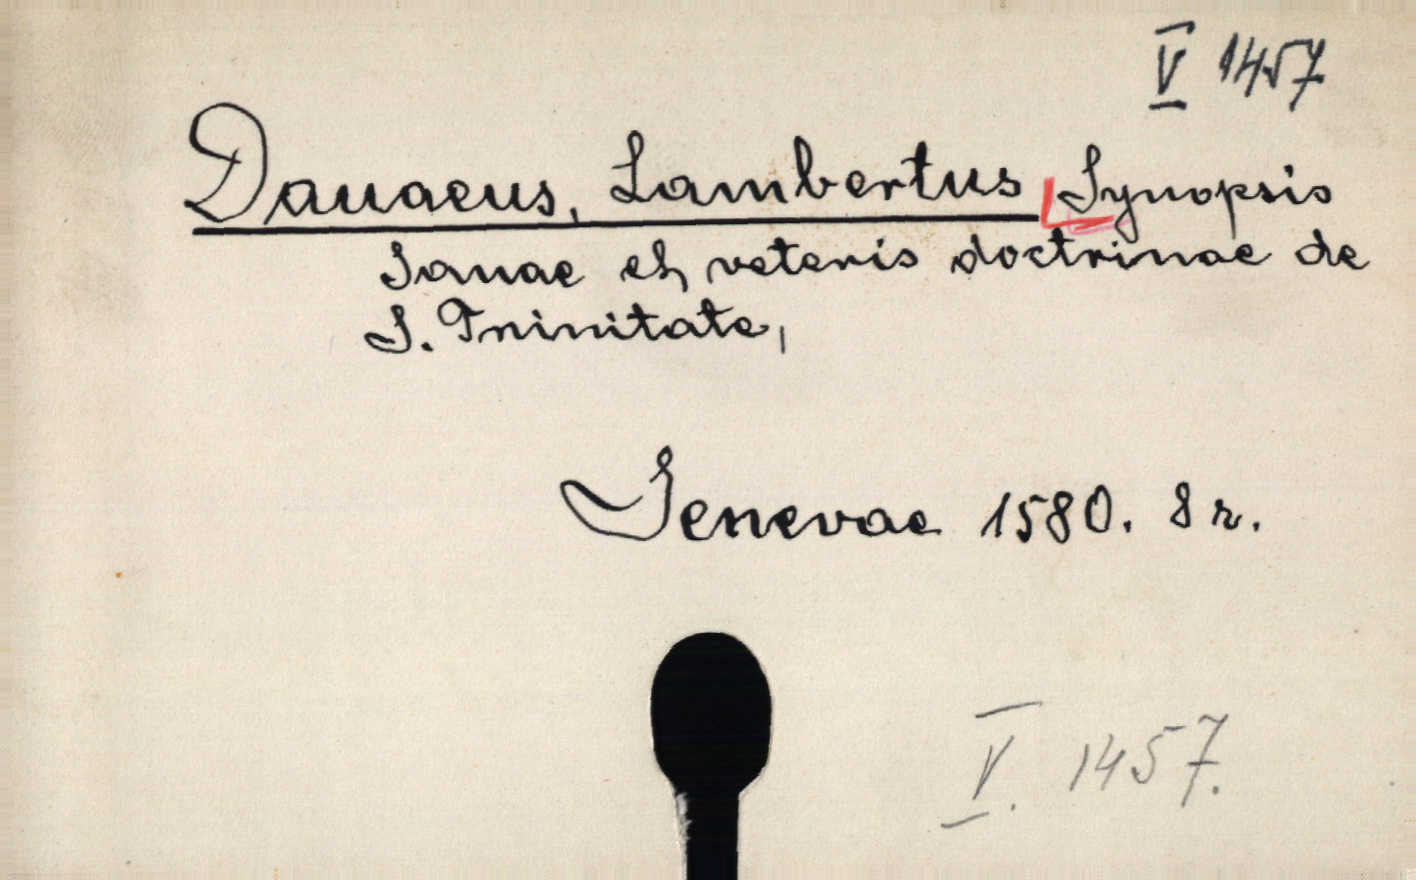 V 1457
Danaeus, Lambertus Synopsis
sanae et veteris doctrinae de
S. Trinitate,
Genevae 1580. 8 r.
V. 1457.